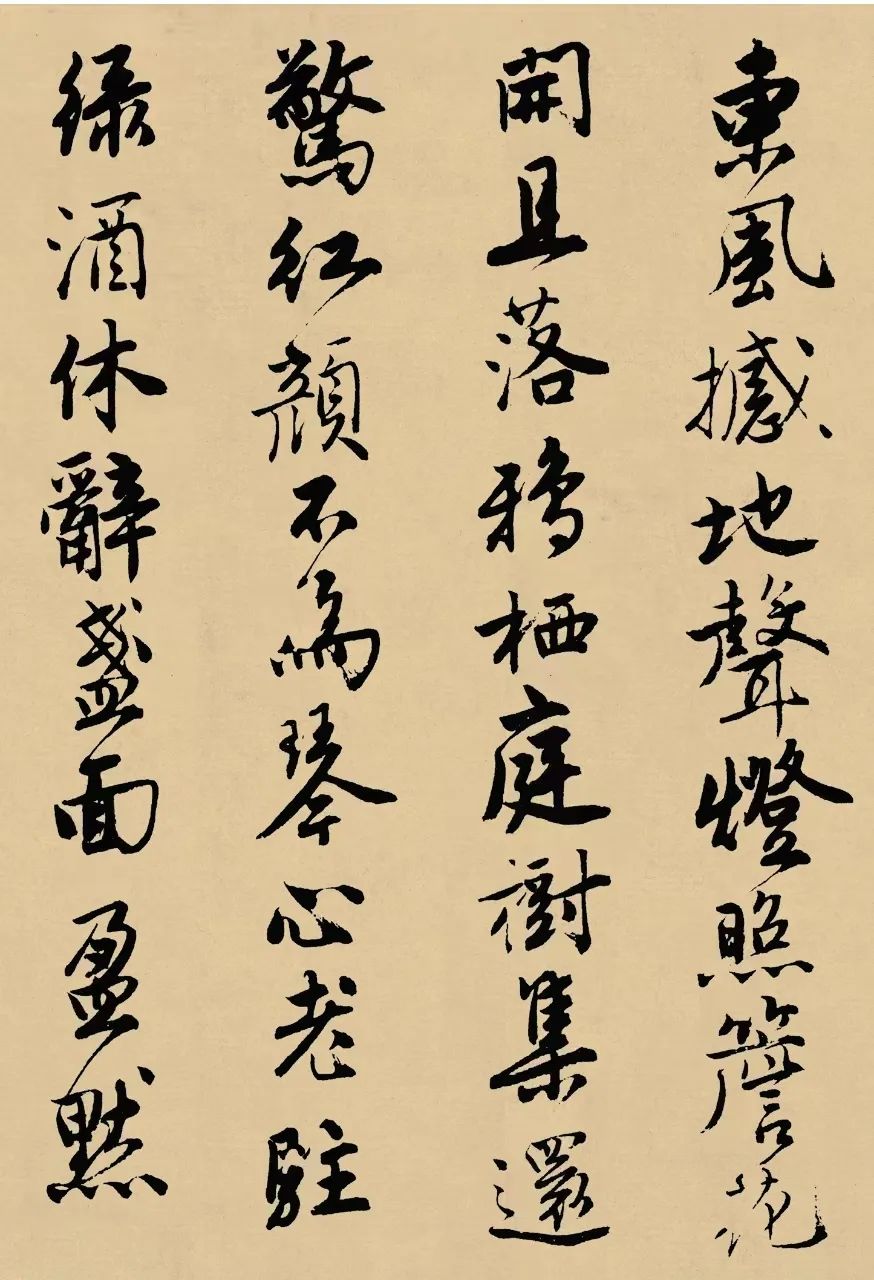 東風撼地聲燈照簷花
開且落鴉栖庭樹集還
驚紅顔不為琴心老駐
緑酒休辭盞面盈黙